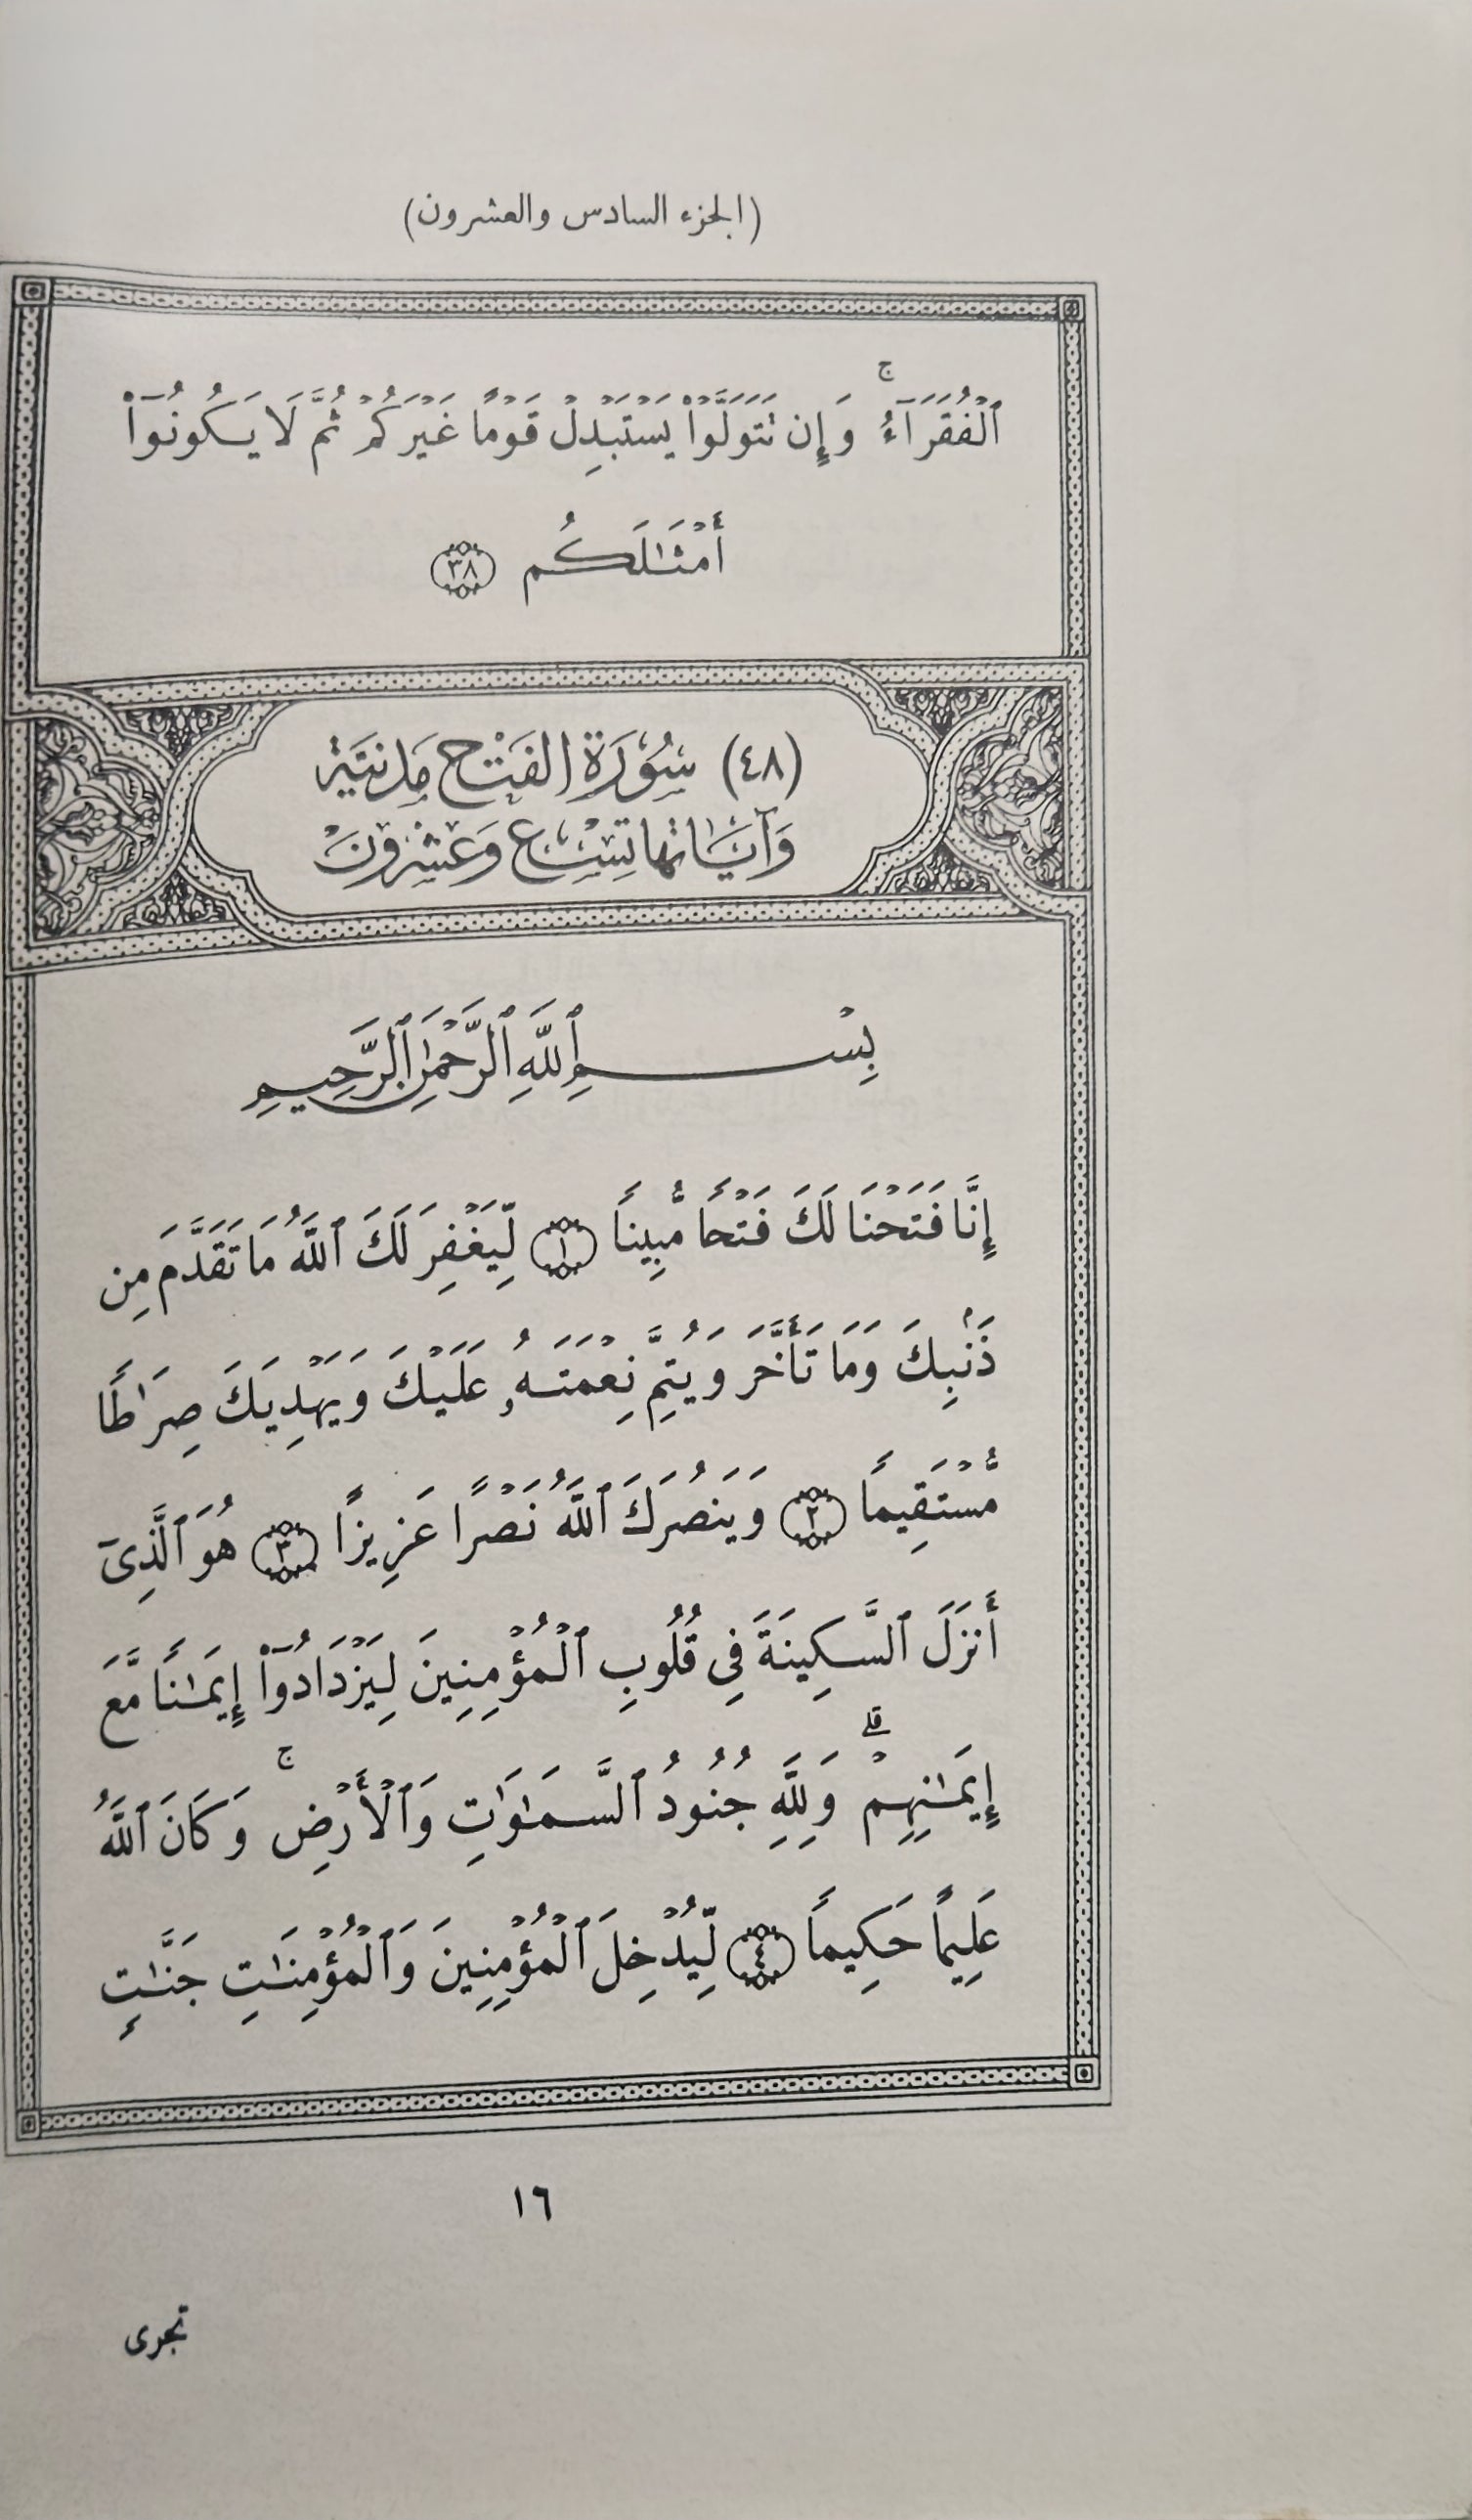 (الجزء السادس والعشرون)
ٱلْفُقَرَآءُ ۚ وَإِن تَتَوَلَّوْا۟ يَسْتَبْدِلْ قَوْمًا غَيْرَكُمْ ثُمَّ لَا يَكُونُوٓا۟
أَمْثَـٰلَكُم ٣٨
(٤٨) سُورَة الفَتْح مَدنيَّة
وَآيَاتها تِسْع وَعَشْرُونَ
بِسْمِ ٱللَّهِ ٱلرَّحْمَـٰنِ ٱلرَّحِيمِ
إِنَّا فَتَحْنَا لَكَ فَتْحًا مُّبِينًا ١ لِّيَغْفِرَ لَكَ ٱللَّهُ مَا تَقَدَّمَ مِن
ذَنۢبِكَ وَمَا تَأَخَّرَ وَيُتِمَّ نِعْمَتَهُۥ عَلَيْكَ وَيَهْدِيَكَ صِرَٰطًا
مُّسْتَقِيمًا ٢ وَيَنصُرَكَ ٱللَّهُ نَصْرًا عَزِيزًا ٣ هُوَ ٱلَّذِىٓ
أَنزَلَ ٱلسَّكِينَةَ فِى قُلُوبِ ٱلْمُؤْمِنِينَ لِيَزْدَادُوٓا۟ إِيمَـٰنًا مَّعَ
إِيمَـٰنِهِمْ ۗ وَلِلَّهِ جُنُودُ ٱلسَّمَـٰوَٰتِ وَٱلْأَرْضِ ۚ وَكَانَ ٱللَّهُ
عَلِيمًا حَكِيمًا ٤ لِّيُدْخِلَ ٱلْمُؤْمِنِينَ وَٱلْمُؤْمِنَـٰتِ جَنَّـٰتٍ
١٦
تجرى